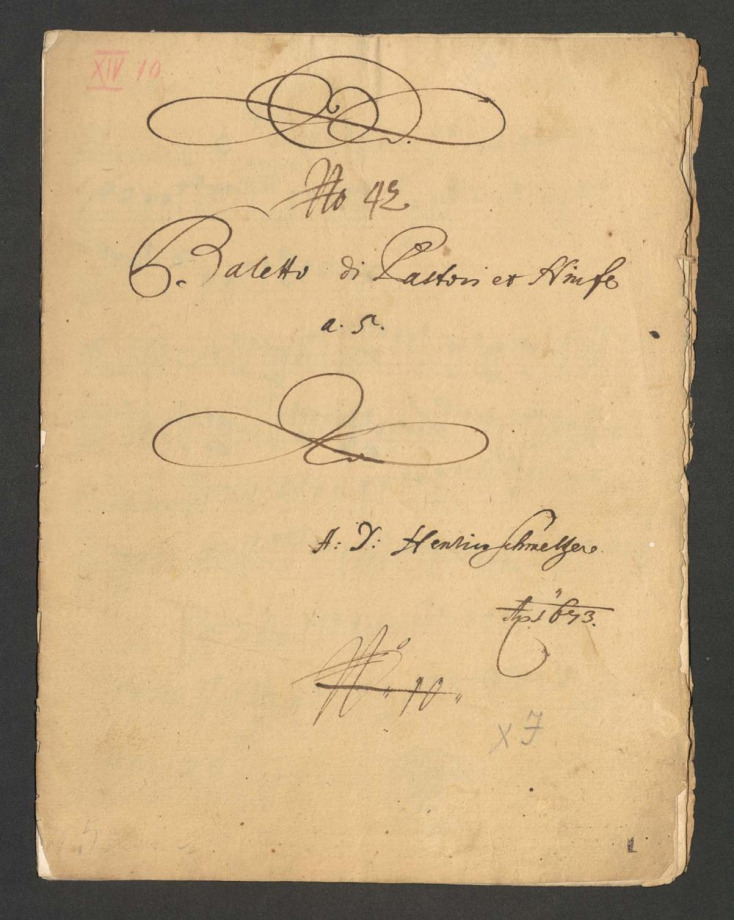 XIV 10.
No 42
Baletto di Pastori et Ninfe
a. 5.
A: D: Henrico Schmelzero
1673.
No 10
X J
1